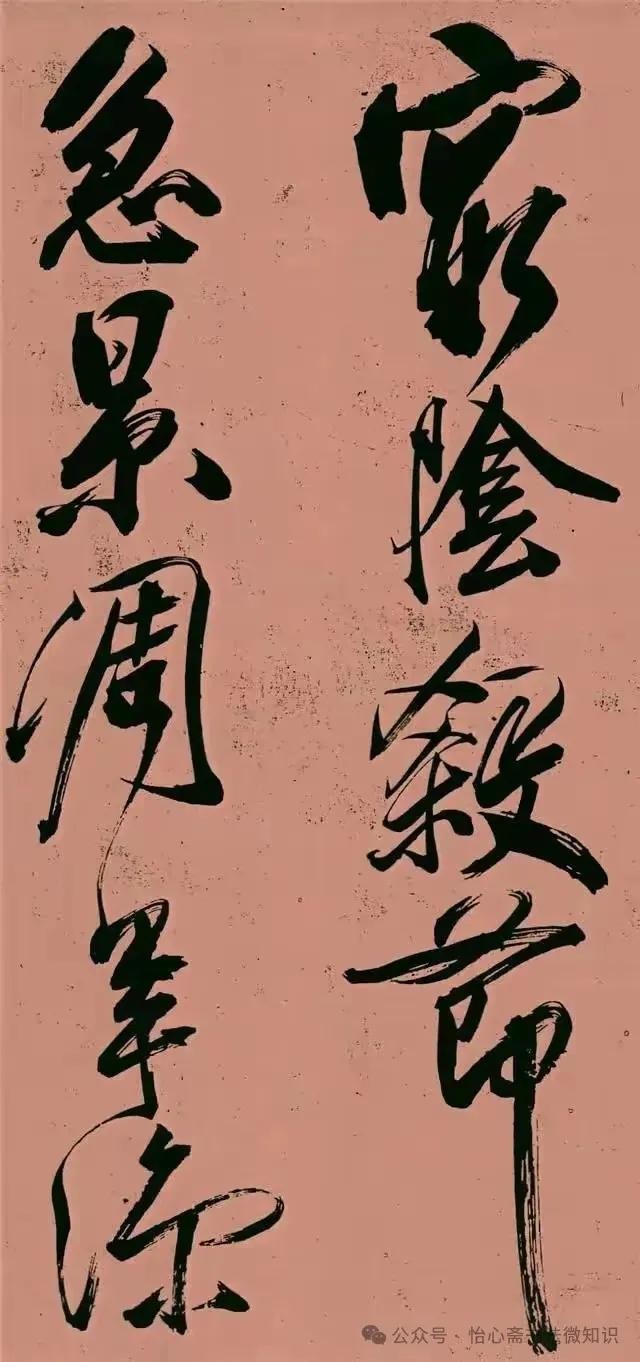 窮陰殺節
急景凋年涼
公众号 · 怡心斋书法微知识